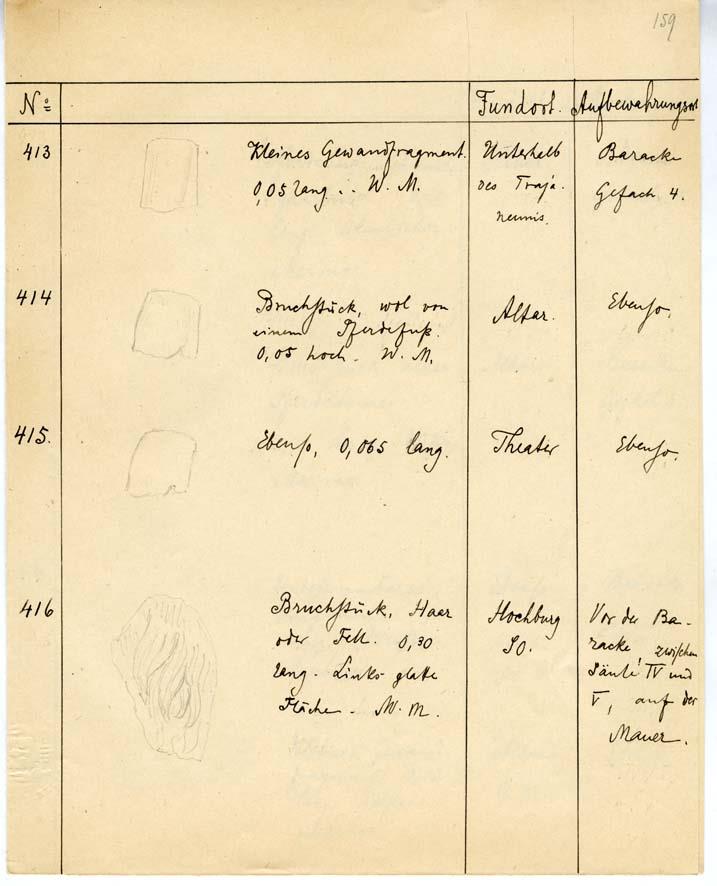 159
No Fundort. Aufbewahrungsort
413 Kleines Gewandfragment. Unterhalb Baracke
0,05 lang. W. M. des Traja- Gefach 4.
neums.
414 Bruchstück, wol von Altar. Ebenso.
einem Pferdefuß.
0,05 hoch. W. M.
415. Ebenso, 0,065 lang. Theater Ebenso.
416 Bruchstück, Haar Hochburg Vor der Ba-
oder Fell. 0,30 SO. racke, zwischen
lang. Links glatte Säule IV und
Fläche. W. M. V, auf der
Mauer.